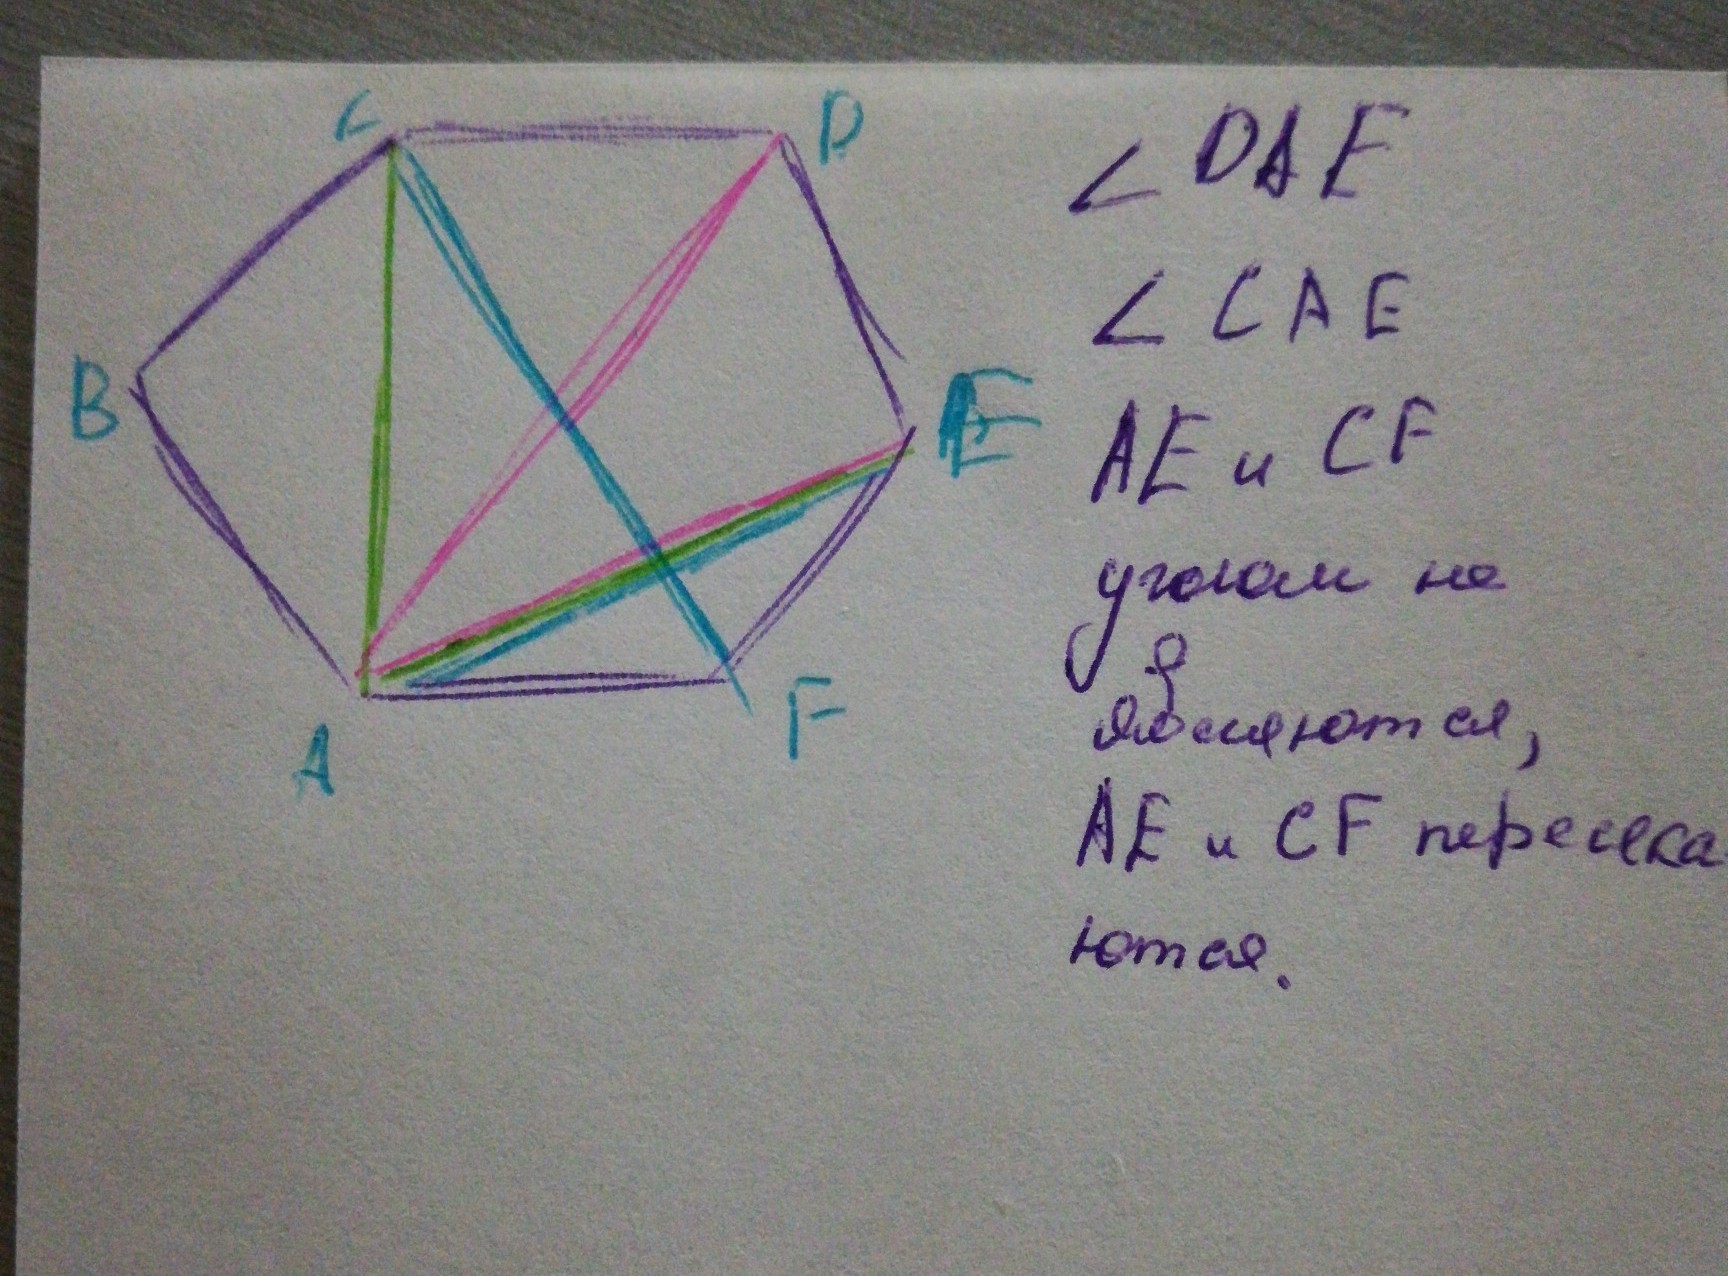 C
D
B
E
A
F
∠ DAE
∠ CAE
AE и CF
углом не
являются,
AE и CF пересека-
ются.